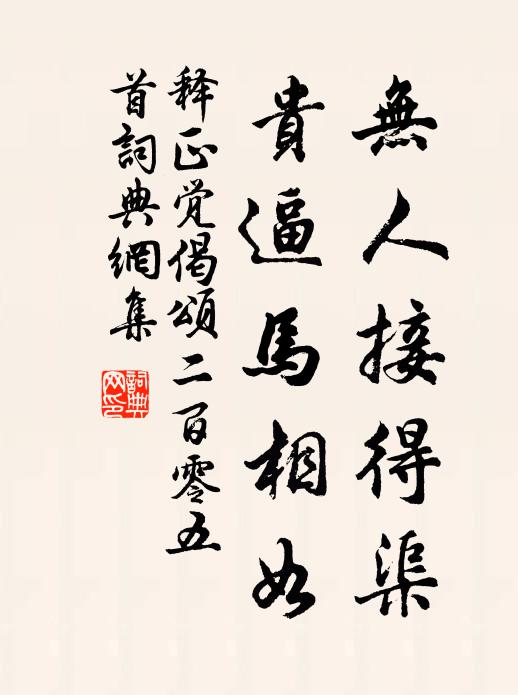 無人接得渠
貴逼馬相如
释正觉偈頌二百零五
首詞典網集
詞典網印